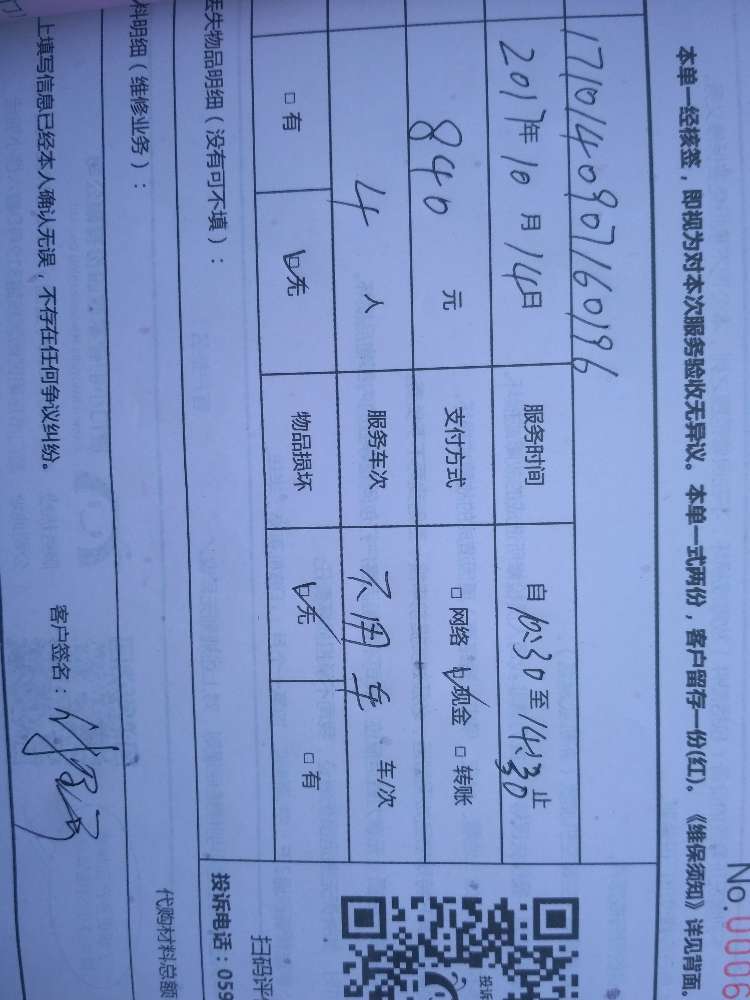 No.0006
本单一经核签，即视为对本次服务验收无异议。本单一式两份，客户留存一份(红)。《维保须知》详见背面。
1710140907160196
2017年10月14日 服务时间 自10:30至14:30止
840元 支付方式 □网络 ☑现金 □转账
4人 服务车次 不用车 车/次
□有 ☑无 物品损坏 ☑无 □有
丢失物品明细（没有可不填）：
料明细（维修业务）：
上填写信息已经本人确认无误，不存在任何争议纠纷。 客户签名：
投诉
扫码评
投诉电话：059
代购材料总额